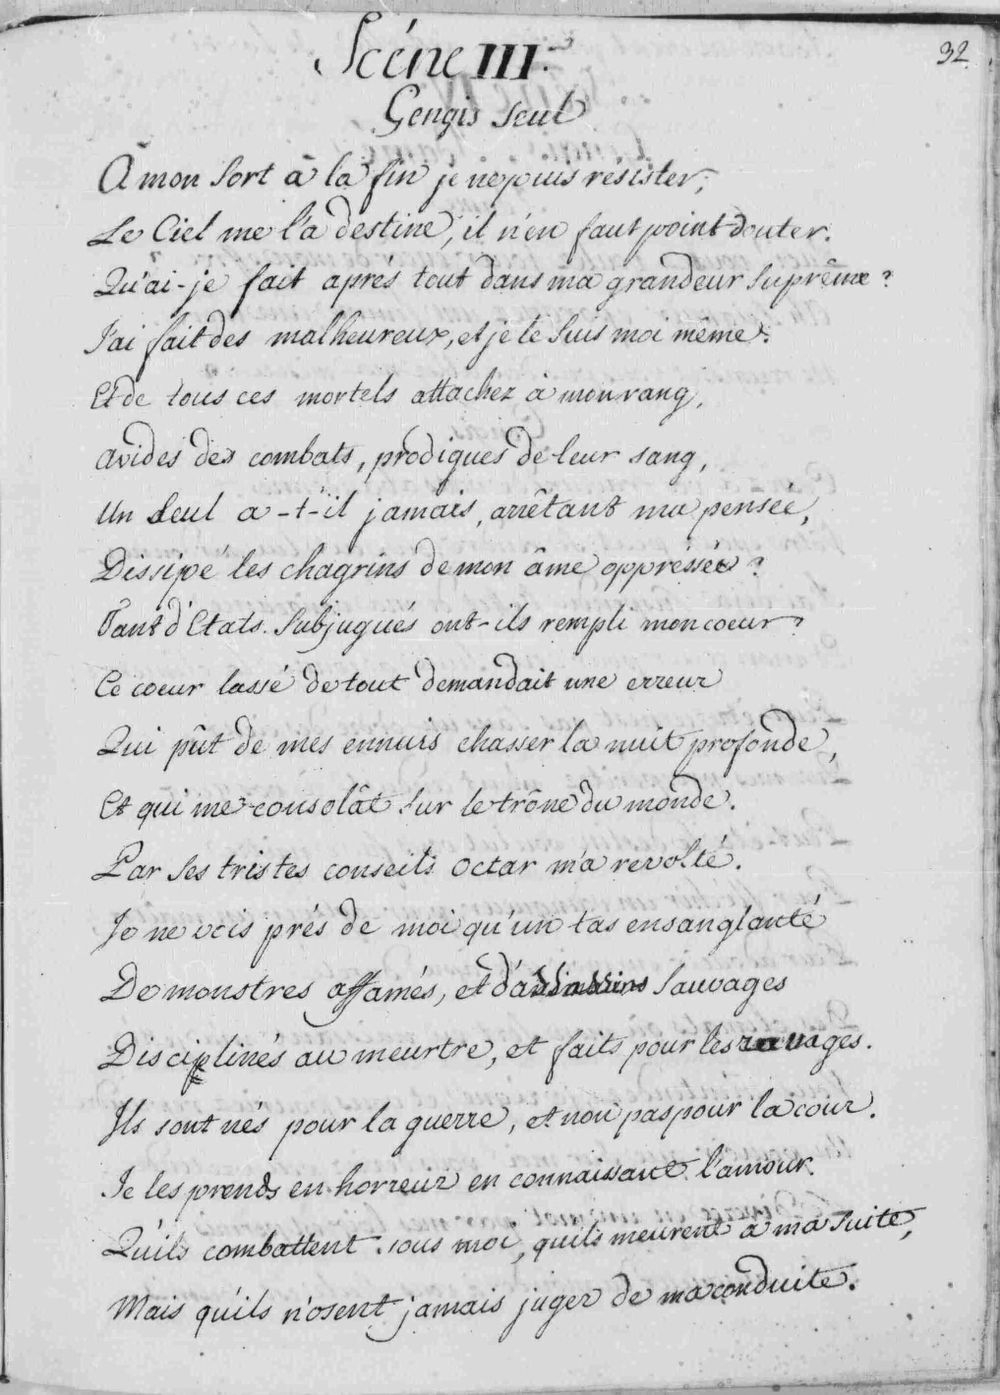 32
Scéne III.
Gengis seul
A mon sort à la fin je ne puis résister;
Le Ciel me l'a destine, il n'en faut point douter.
Qu'ai-je fait aprés tout dans ma grandeur suprême?
J'ai fait des malheureux, et je le suis moi même.
Et de tous ces mortels attachez à mon rang,
avides des combats, prodigues de leur sang,
Un seul a-t-il jamais, arrêtant ma pensée,
Dissipé les chagrins de mon âme oppressée?
Tant d'Etats subjugués ont-ils rempli mon coeur?
Ce coeur lassé de tout demandait une erreur
Qui pût de mes ennuis chasser la nuit profonde,
Et qui me consolât sur le trône du monde.
Par ses tristes conseils Octar m'a revolté.
Je ne vois prés de moi qu'un tas ensanglanté
De monstres affamés, et d'assassins sauvages
Disciplinés au meurtre, et faits pour les ravages.
Ils sont nés pour la guerre, et non pas pour la cour.
Je les prends en horreur en connaissant l'amour.
Qu'ils combattent sous moi, quils meurent a ma suite,
Mais qu'ils n'osent jamais juger de ma conduite.